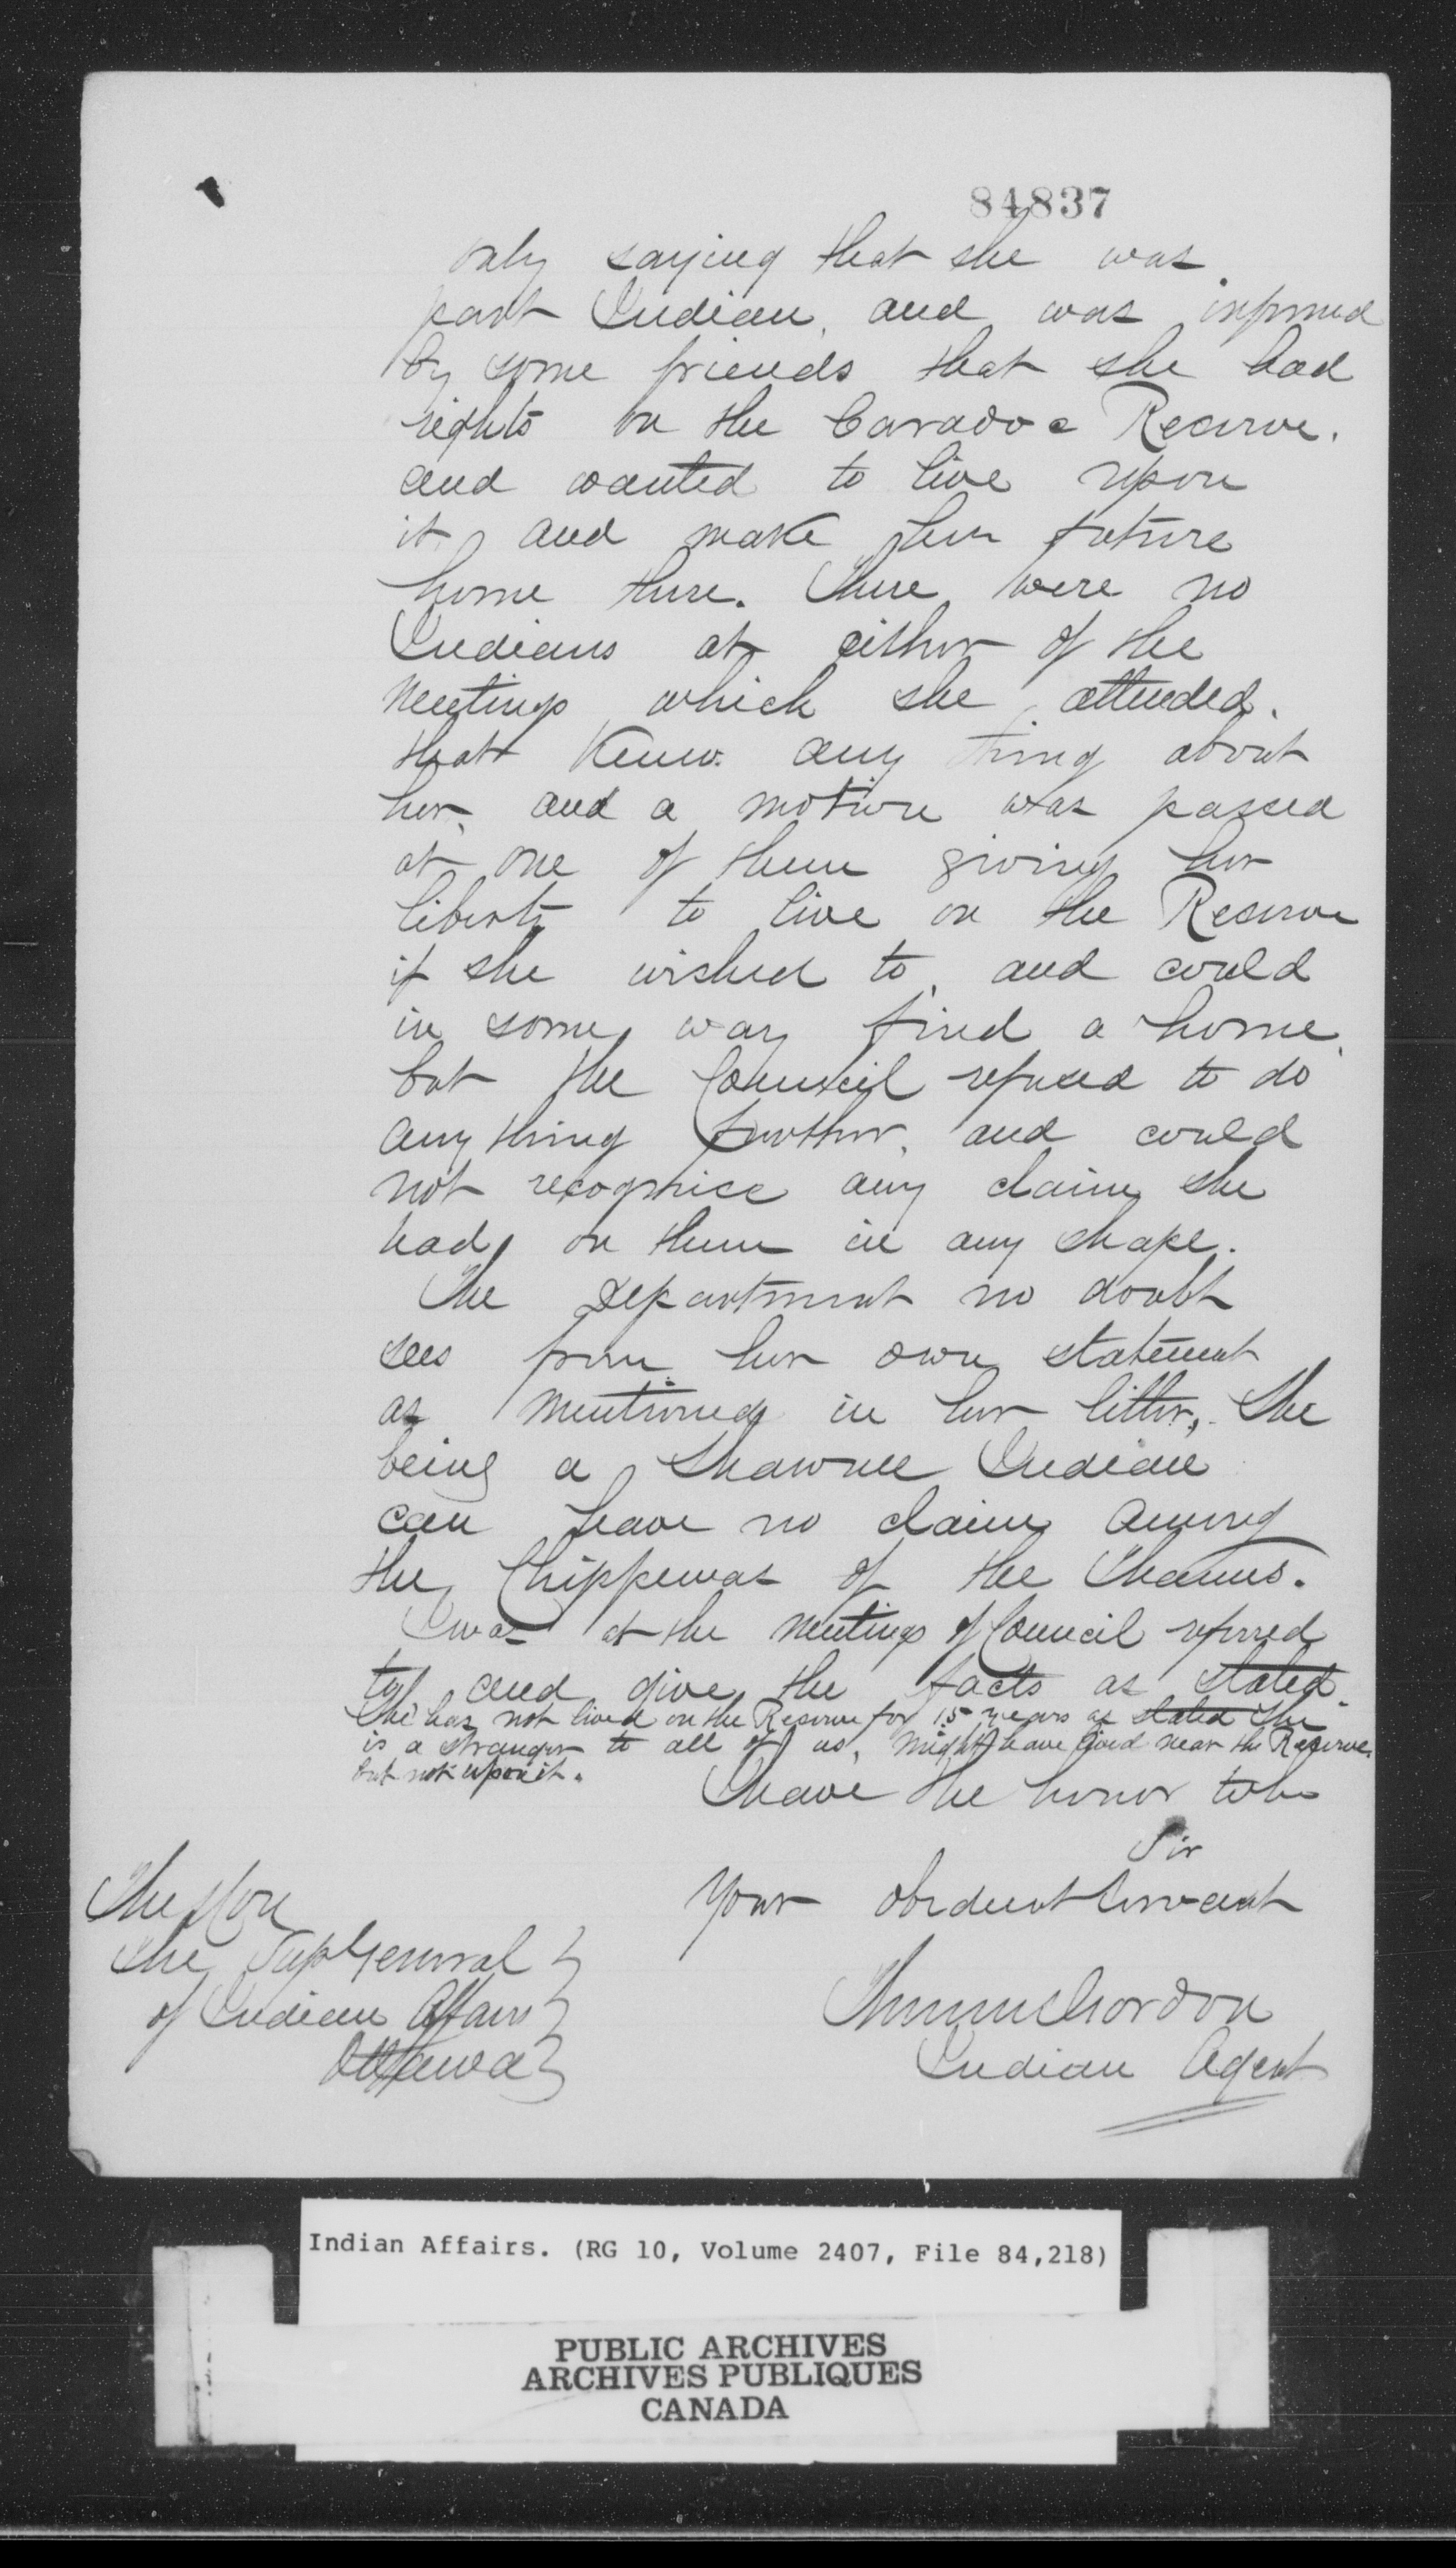 84837
only saying that she was
part Indian, and was informed
by some friends that she had
rights on the Caradoc Reserve.
and wanted to live upon
it and make her future
home there. There were no
Indians at either of the
meetings which she attended.
that knew any thing about
her, and a motion was passed
at one of them giving her
liberty to live on the Reserve
if she wished to, and could
in some way find a home,
but the Council refused to do
any thing further, and could
not recognise any claim she
had on them in any shape.
The Department no doubt
sees from her own statement
as mentioned in her letter, She
being a Shawnee Indian
can have no claim among
the Chippewas of the Thames.
I was at the meetings of Council referred
to and give the facts as stated.
She has not lived on the Reserve for 15 years as stated She
is a stranger to all of us, might have lived near the Reserve
but not upon it.
I have the honor to be
Sir
Your obedient Servant
The Hon
The Sup General
of Indian Affairs
Ottawa
Gordon
Indian Agent
Indian Affairs. (RG 10, Volume 2407, File 84,218)
PUBLIC ARCHIVES
ARCHIVES PUBLIQUES
CANADA